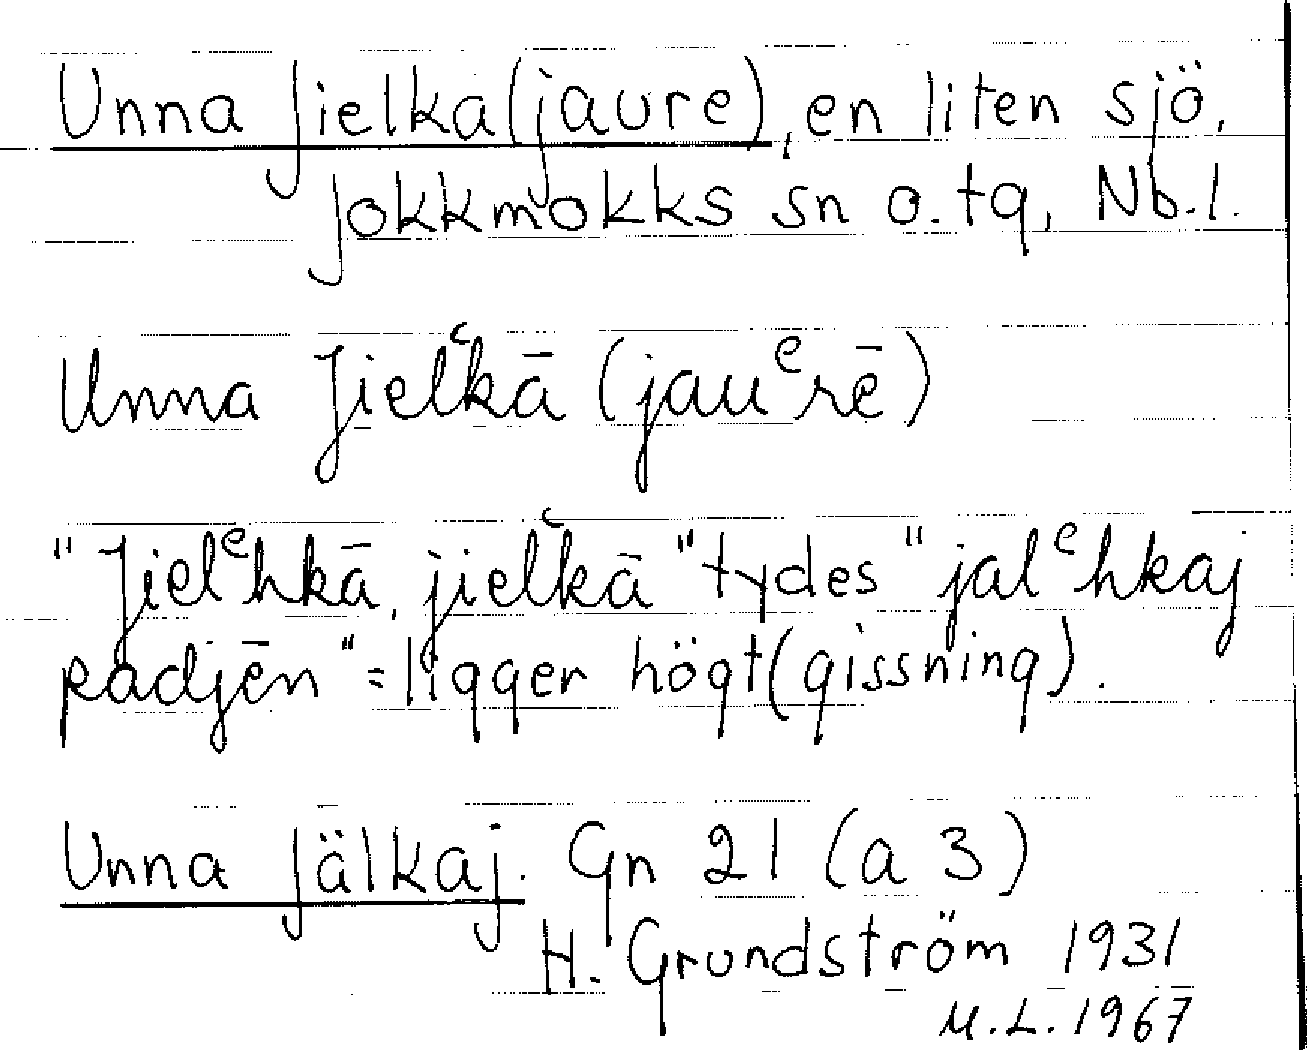 Unna Jielka(jaure), en liten sjö,
Jokkmokks sn o. tg, Nb. l.
Unna Jielʿkā (jauᵉrē)
"Jielᵉhkā, jielʿkā" tydes "jalᵉhkaj
padjēn" = ligger högt (gissning).
Unna Jälkaj. Gn 21 (a 3)
H. Grundström 1931
M.L. 1967